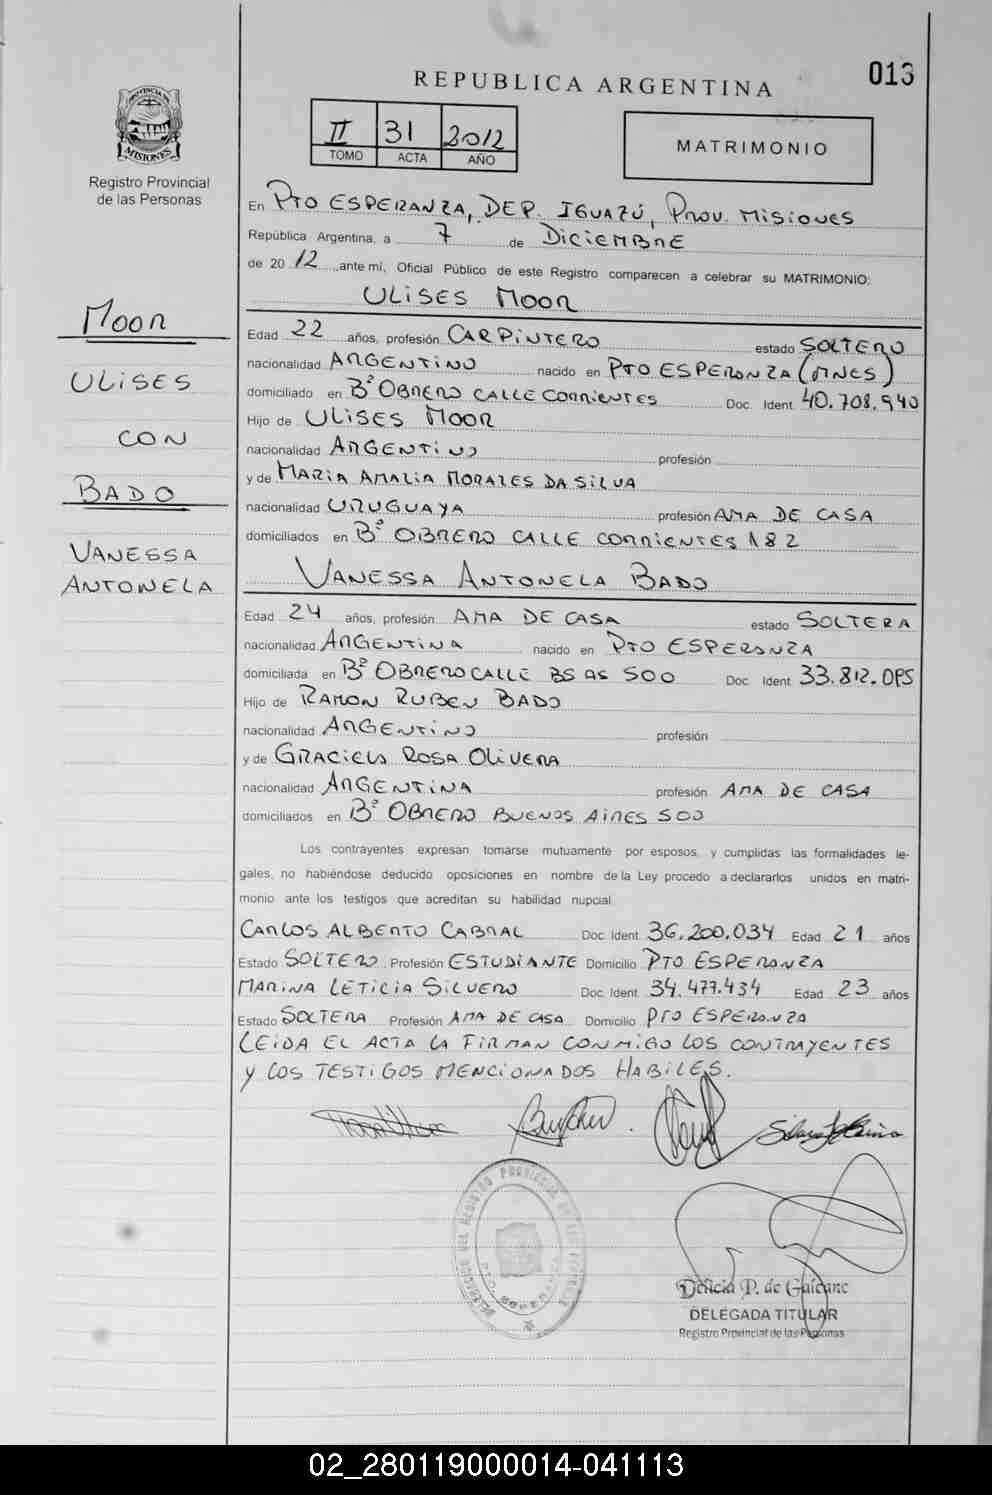 013
REPUBLICA ARGENTINA
PROVINCIA DE
MISIONES
Registro Provincial
de las Personas
II 31 2012
TOMO ACTA AÑO
MATRIMONIO
En PTO ESPERANZA, DEP. IGUAZÚ, PROV. MISIONES
República Argentina, a 7 de DICIEMBRE
de 20 12, ante mí, Oficial Público de este Registro comparecen a celebrar su MATRIMONIO:
ULISES MOOR
MOOR
ULISES
CON
BADO
VANESSA
ANTONELA
Edad 22 años, profesión CARPINTERO estado SOLTERO
nacionalidad ARGENTINO nacido en PTO ESPERANZA (MNES)
domiciliado en Bº OBRERO CALLE CORRIENTES Doc. Ident. 40.708.940
Hijo de ULISES MOOR
nacionalidad ARGENTINO profesión
y de MARIA AMALIA MORALES DA SILVA
nacionalidad URUGUAYA profesión AMA DE CASA
domiciliados en Bº OBRERO CALLE CORRIENTES 182
VANESSA ANTONELA BADO
Edad 24 años, profesión AMA DE CASA estado SOLTERA
nacionalidad ARGENTINA nacido en PTO ESPERANZA
domiciliada en Bº OBRERO CALLE BS AS 500 Doc. Ident. 33.812.085
Hijo de RAMON RUBEN BADO
nacionalidad ARGENTINO profesión
y de GRACIELA ROSA OLIVERA
nacionalidad ARGENTINA profesión AMA DE CASA
domiciliados en Bº OBRERO BUENOS AIRES 500
Los contrayentes expresan tomarse mutuamente por esposos, y cumplidas las formalidades le-
gales, no habiéndose deducido oposiciones en nombre de la Ley procedo a declararlos unidos en matri-
monio ante los testigos que acreditan su habilidad nupcial.
CARLOS ALBERTO CABRAL Doc. Ident. 36.200.034 Edad 21 años
Estado SOLTERO Profesión ESTUDIANTE Domicilio PTO ESPERANZA
MARINA LETICIA SILVERO Doc. Ident. 34.477.434 Edad 23 años
Estado SOLTERA Profesión AMA DE CASA Domicilio PTO ESPERANZA
LEIDA EL ACTA LA FIRMAN CONMIGO LOS CONTRAYENTES
Y LOS TESTIGOS MENCIONADOS HABILES.
DELEGACION DEL REGISTRO PROVINCIAL DE LAS PERSONAS
PTO. ESPERANZA
Delicia P. de Galeano
DELEGADA TITULAR
Registro Provincial de las Personas
02_280119000014-041113